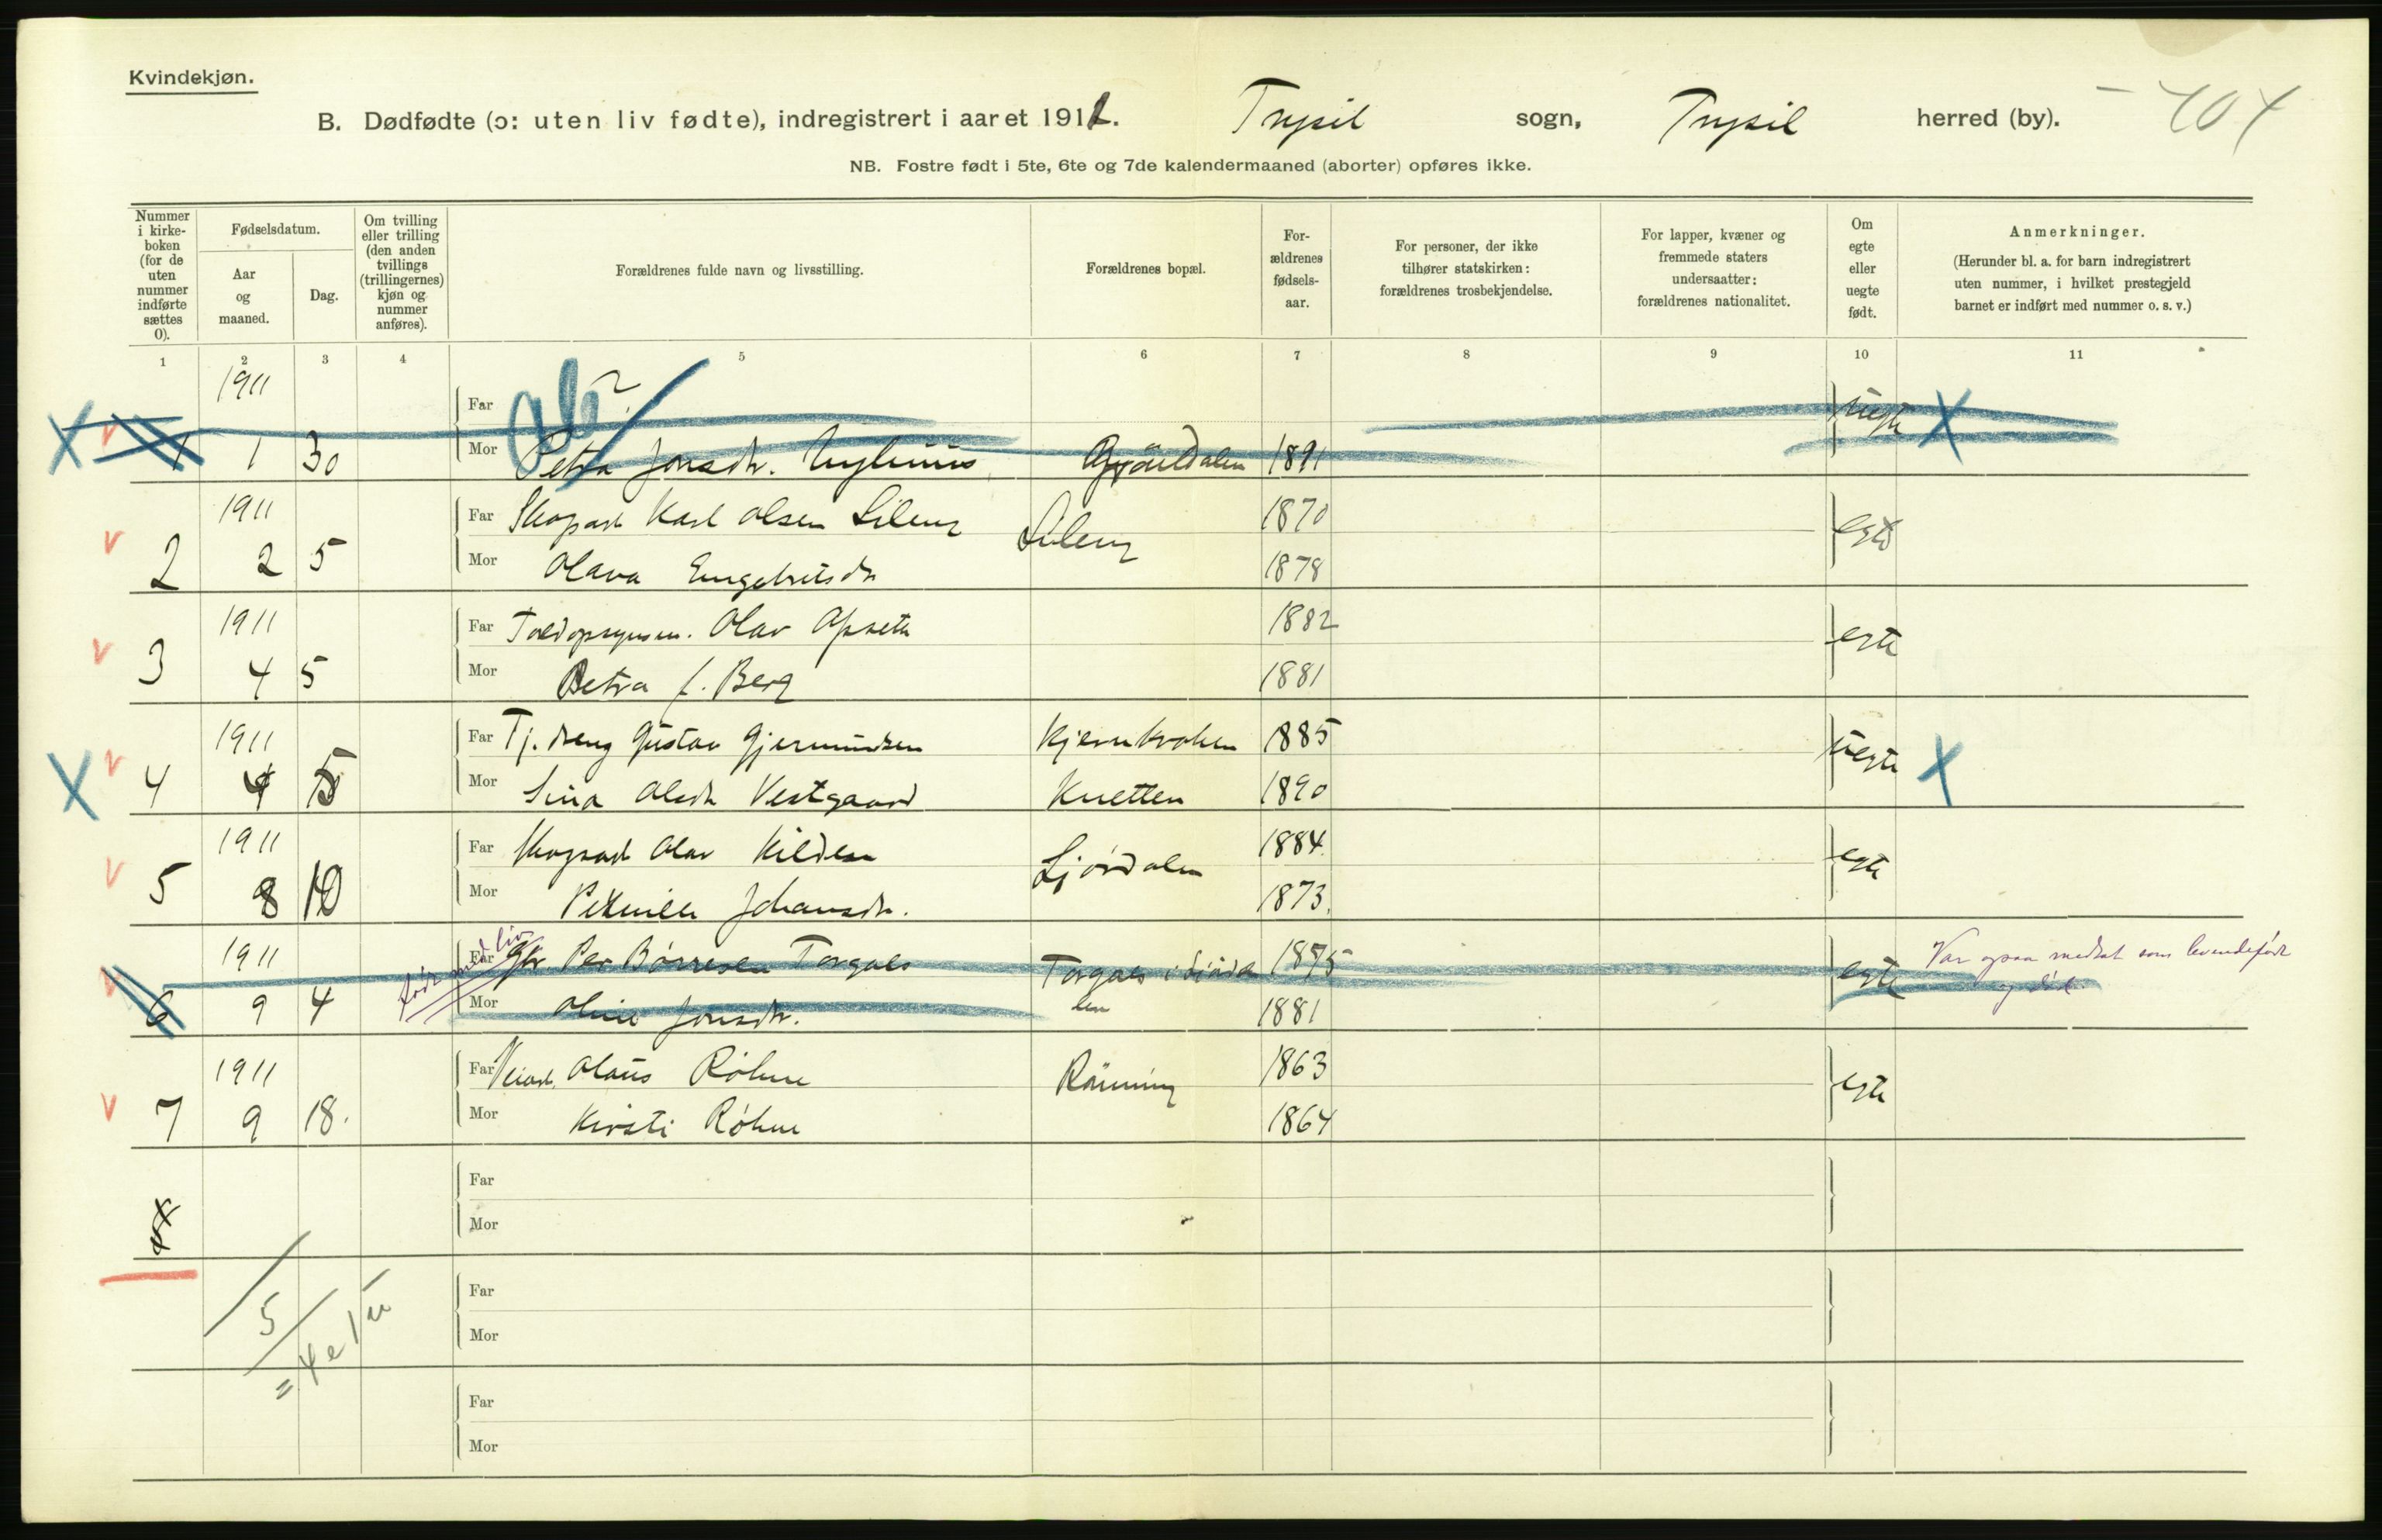 Kvindekjøn.
B. Dødfødte (ɔ: uten liv fødte), indregistrert i aaret 1911. Trysil sogn, Trysil herred (by). - 404
NB. Fostre født i 5te, 6te og 7de kalendermaaned (aborter) opføres ikke.
Nummer i kirke- boken (for de uten nummer indførte sættes 0).
Fødselsdatum.
Aar og maaned.
Dag.
Om tvilling eller trilling (den anden tvillings (trillingernes) kjøn og nummer anføres).
Forældrenes fulde navn og livsstilling.
Forældrenes bopæl.
For- ældrenes fødsels- aar.
For personer, der ikke tilhører statskirken: forældrenes trosbekjendelse.
For lapper, kvæner og fremmede staters undersaatter: forældrenes nationalitet.
Om egte eller uegte født.
Anmerkninger.
(Herunder bl. a. for barn indregistrert uten nummer, i hvilket prestegjeld barnet er indført med nummer o. s. v.)
1 2 3 4 5 6 7 8 9 10 11
1911 Far ab? uegte X
X v 1 1 30 Mor Petra Jonsdr. 1891
1911 Far Skogarb Karl Olsen Lileng Lileng 1870 egte
v 2 2 5 Mor Olava Engebretsdr 1878
1911 Far Toldopsynsm. Olav Opseth 1882 egte
v 3 4 5 Mor Petra f. Berg 1881
1911 Far Tj. dreng Gustav Gjermundsen 1885 uegte X
X v 4 4 5 Mor Olsdr Vestgaard Knetten 1890
1911 Far Skogarb Olav Kildem Ljørdalen 1884 egte
v 5 8 10 Mor Pernille Johansdr. 1873.
født med liv
1911 Far Gbr Per Børresen Torgals Torgals i Ljørda 1875 egte Var opsaa medtat som levendefødt
v 6 9 4 Mor Oline Jonsdr. len 1881 og død.
1911 Far Veiarb. Olaus Röhne Rönning 1863 egte
v 7 9 18. Mor Kirsti Röhne 1864
Far
8 Mor
Far
5 Mor
= 4 e 1 u
Far
Mor